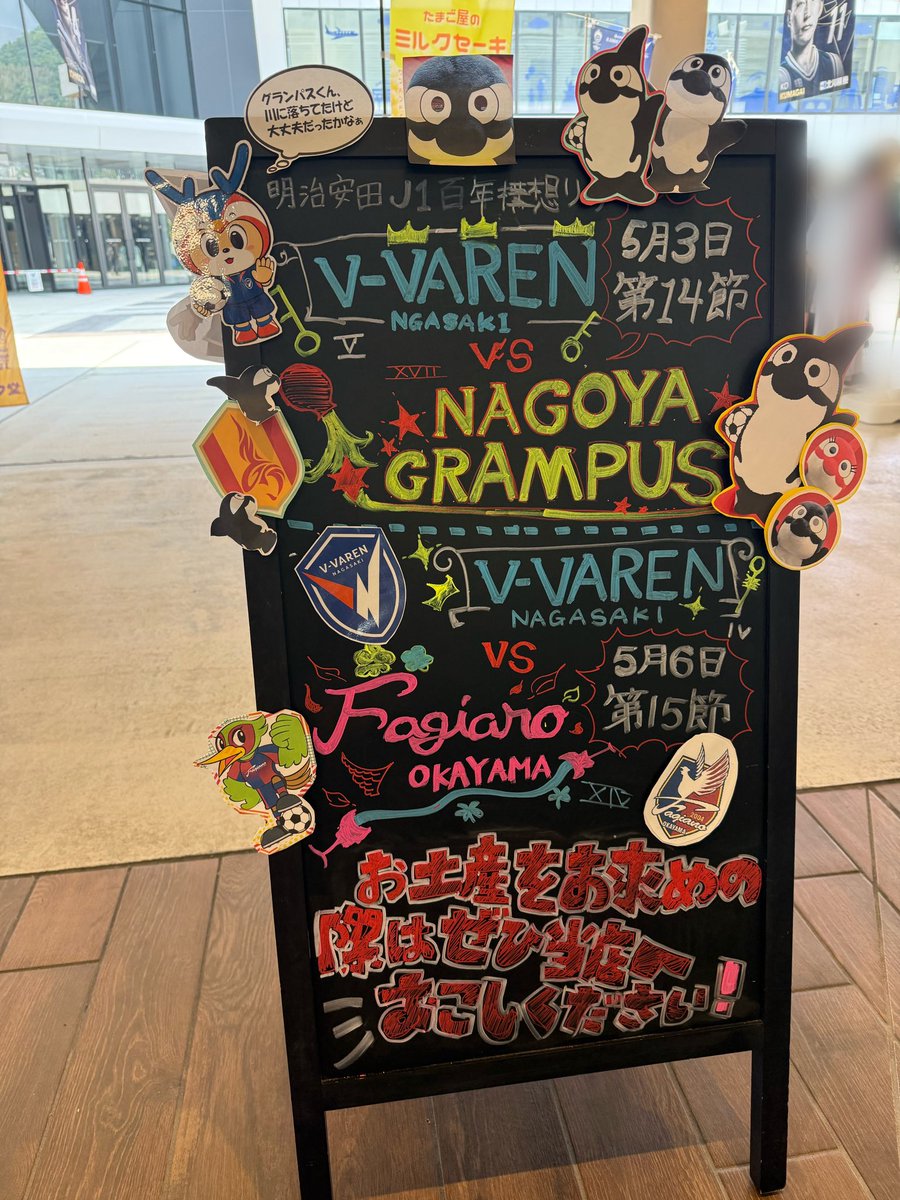 たまご屋の
ミルクセーキ
11
KUMAGAI
グランパスくん、
川に落ちてたけど
大丈夫だったかなぁ
明治安田J1百年構想リ
V-VAREN
NGASAKI
V
5月3日
第14節
VS
XVII
NAGOYA
GRAMPUS
V-VAREN
NAGASAKI
V-VAREN
NAGASAKI
IV
VS
5月6日
第15節
Fagiaro
OKAYAMA
XIV
Fagiano
2004
OKAYAMA
お土産をお求めの
際はぜひ当店へ
おこしください!